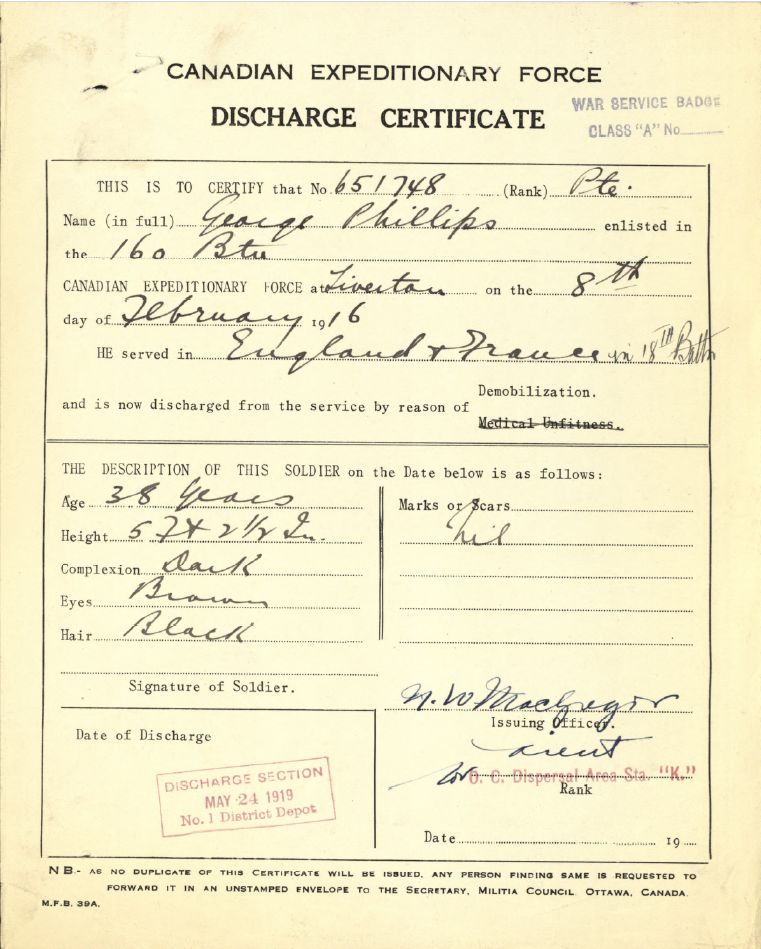 CANADIAN EXPEDITIONARY FORCE
DISCHARGE CERTIFICATE
WAR SERVICE BADGE
CLASS "A" No
THIS IS TO CERTIFY that No. 651748 (Rank) Pte.
Name (in full) George Phillips enlisted in
the 160 Btn
CANADIAN EXPEDITIONARY FORCE at Tiverton on the 8th
day of February 1916
HE served in England & France in 18TH Battn
and is now discharged from the service by reason of
Demobilization.
Medical Unfitness.
THE DESCRIPTION OF THIS SOLDIER on the Date below is as follows:
Age 38 Years
Height 5 Ft 2 1/2 In.
Complexion Dark
Eyes Brown
Hair Black
Marks or Scars
Nil
Signature of Soldier.
N. W MacGregor
Issuing Officer.
Lieut
for O. C. Dispersal Area Sta. "K."
Rank
Date of Discharge
DISCHARGE SECTION
MAY 24 1919
No. 1 District Depot
Date 19
NB.- AS NO DUPLICATE OF THIS CERTIFICATE WILL BE ISSUED, ANY PERSON FINDING SAME IS REQUESTED TO
FORWARD IT IN AN UNSTAMPED ENVELOPE TO THE SECRETARY, MILITIA COUNCIL OTTAWA, CANADA.
M.F.B. 39A.